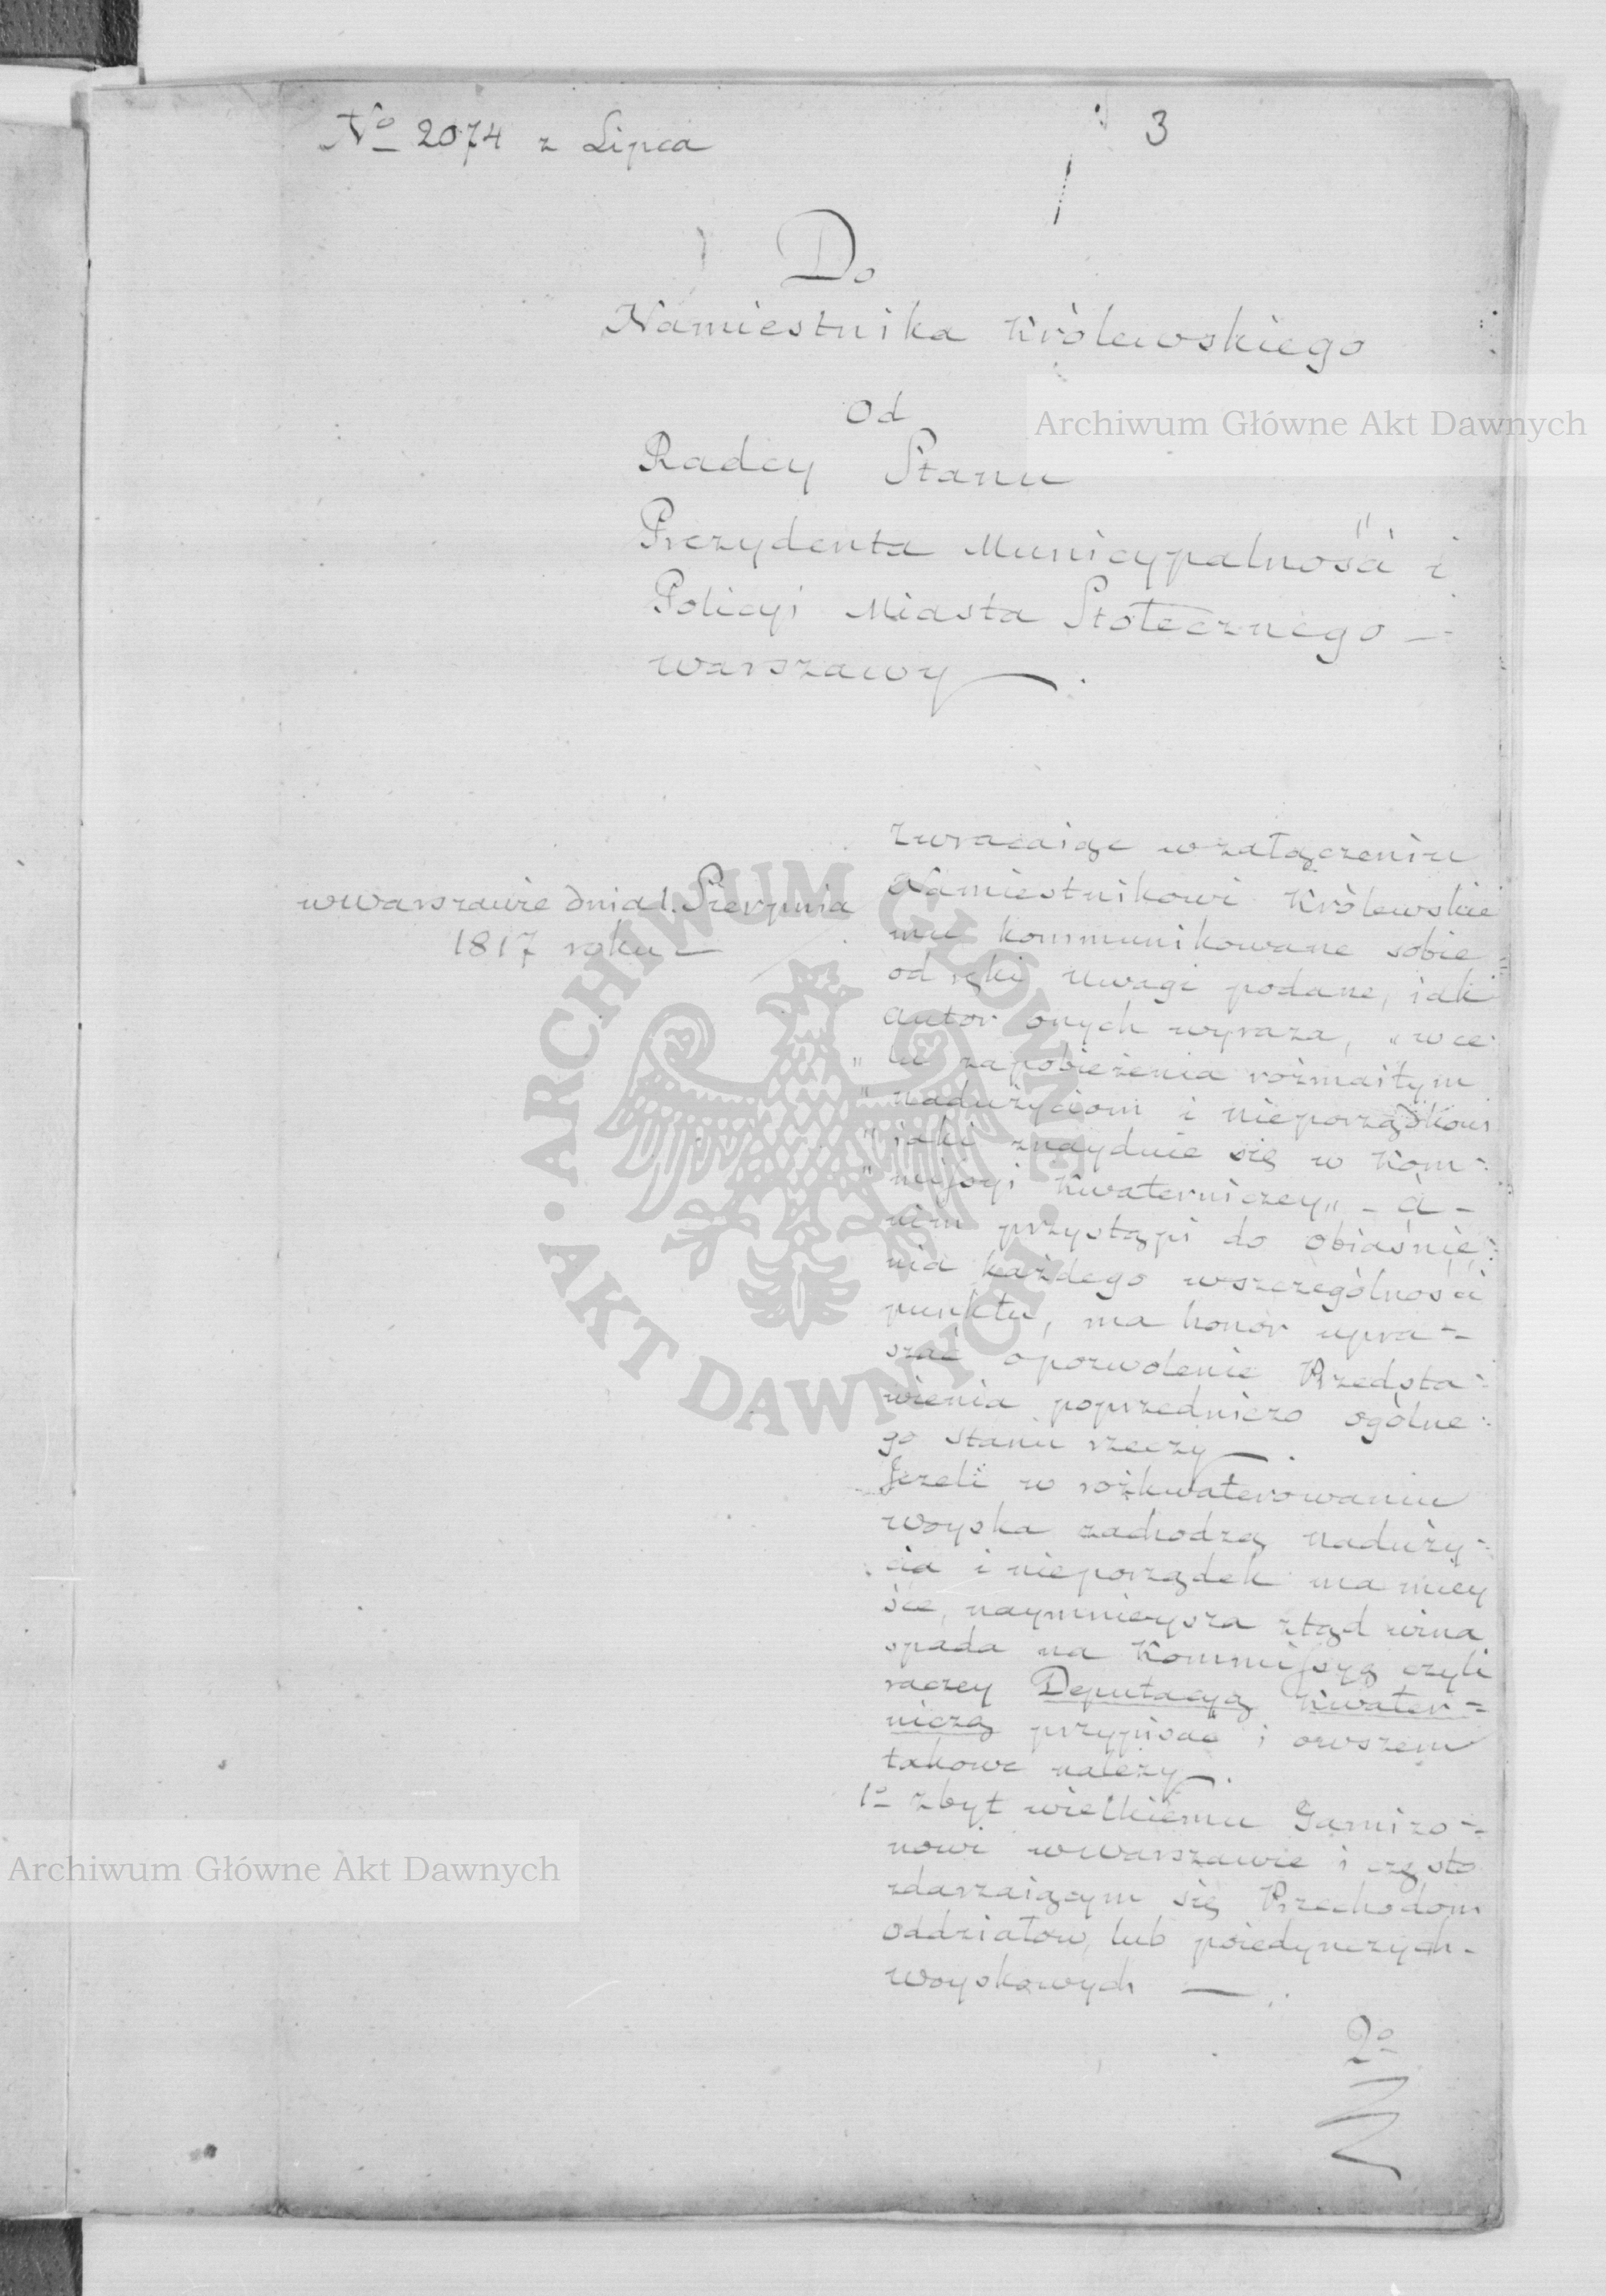 3
No 2074 z Lipca
Do
Namiestnika Królewskiego
Od
Radcy Stanu
Prezydenta Municypalności i
Policyi Miasta Stołecznego –
warszawy
wwarszawie dnia 1. Sierpnia
1817 roku –
Zwracaiąc wzałączeniu
Namiestnikowi Królewskie
mu kommunikowane sobie =
od ręki Uwagi podane, iak
autor onych wyraza, „ w ce-
„ lu zapobieżenia rożmaitym
„ nadużyciom i nieporządkowi
„ iaki znayduie się w Kom-
„ miſsyi Kwaterniczey „ – a –
nim przystąpi do obiaśnie-
nia każdego wszczególności
punktu, ma honor upra-
szać o pozwolenie Przedsta-
wienia poprzedniczo ogólne-
go stanu rzeczy.
Jeżeli w rozkwaterowaniu
woyska zachodzą naduży-
cia i nieporządek ma miey
sce, naymnieysza ztąd wina
spada na Kommiſsyą czyli
raczey Deputacyą Kwater-
niczą przypisać i owszem
takowe należy.
1o zbyt wielkiemu Garnizo-
nowi wwarszawie i często
zdarzaiącym się Przechodom
oddziałow, lub poiedynczych –
woyskowych –
2o
Archiwum Główne Akt Dawnych
Archiwum Główne Akt Dawnych
ARCHIWUM GŁÓWNE AKT DAWNYCH